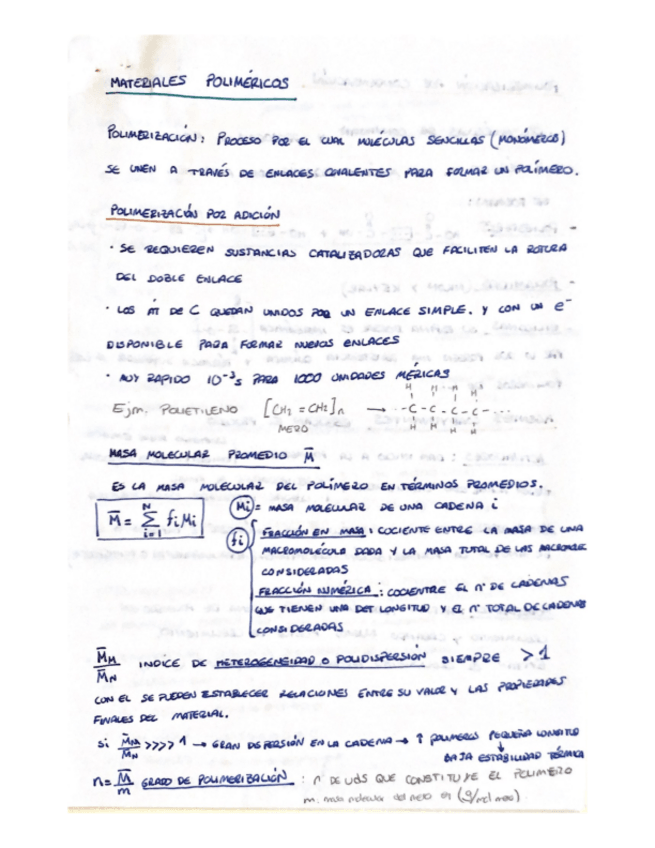 MATERIALES POLIMÉRICOS
POLIMERIZACIÓN: PROCESO POR EL CUAL MOLÉCULAS SENCILLAS (MONÓMEROS)
SE UNEN A TRAVÉS DE ENLACES COVALENTES PARA FORMAR UN POLÍMERO.
POLIMERIZACIÓN POR ADICIÓN
· SE REQUIEREN SUSTANCIAS CATALIZADORAS QUE FACILITEN LA ROTURA
DEL DOBLE ENLACE
· LOS át DE C QUEDAN UNIDOS POR UN ENLACE SIMPLE. Y CON UN e⁻
DISPONIBLE PARA FORMAR NUEVOS ENLACES
· MUY RAPIDO 10⁻³s PARA 1000 UNIDADES MÉRICAS
H H H H
Ejm. POLIETILENO [CH₂ = CH₂]n → ··-C-C-C-C-···
MERO H H H H
MASA MOLECULAR PROMEDIO M̅
ES LA MASA MOLECULAR DEL POLÍMERO EN TÉRMINOS PROMEDIOS.
M̅ = N Σ i=1 fi Mi
Mi = MASA MOLECULAR DE UNA CADENA i
fi FRACCIÓN EN MASA: COCIENTE ENTRE LA MASA DE UNA
MACROMOLÉCULA DADA Y LA MASA TOTAL DE LAS
CONSIDERADAS
FRACCIÓN NUMÉRICA: COCIENTRE EL nº DE CADENAS
QUE TIENEN UNA DET LONGITUD Y EL nº TOTAL DE CADENAS
CONSIDERADAS
M̅M/M̅N INDICE DE HETEROGENEIDAD O POLIDISPERSIÓN SIEMPRE > 1
CON EL SE PUEDEN ESTABLECER RELACIONES ENTRE SU VALOR Y LAS PROPIEDADES
FINALES DEL MATERIAL.
Si M̅M/M̅N >>>> 1 → GRAN DISPERSIÓN EN LA CADENA → ↑ POLIMEROS PEQUEÑA LONGITUD
↓
BAJA ESTABILIDAD TÉRMICA
n = M̅/m GRADO DE POLIMERIZACIÓN : nº DE uds QUE CONSTITUYE EL POLIMERO
m. masa molecular del mero en (g/mol mero)